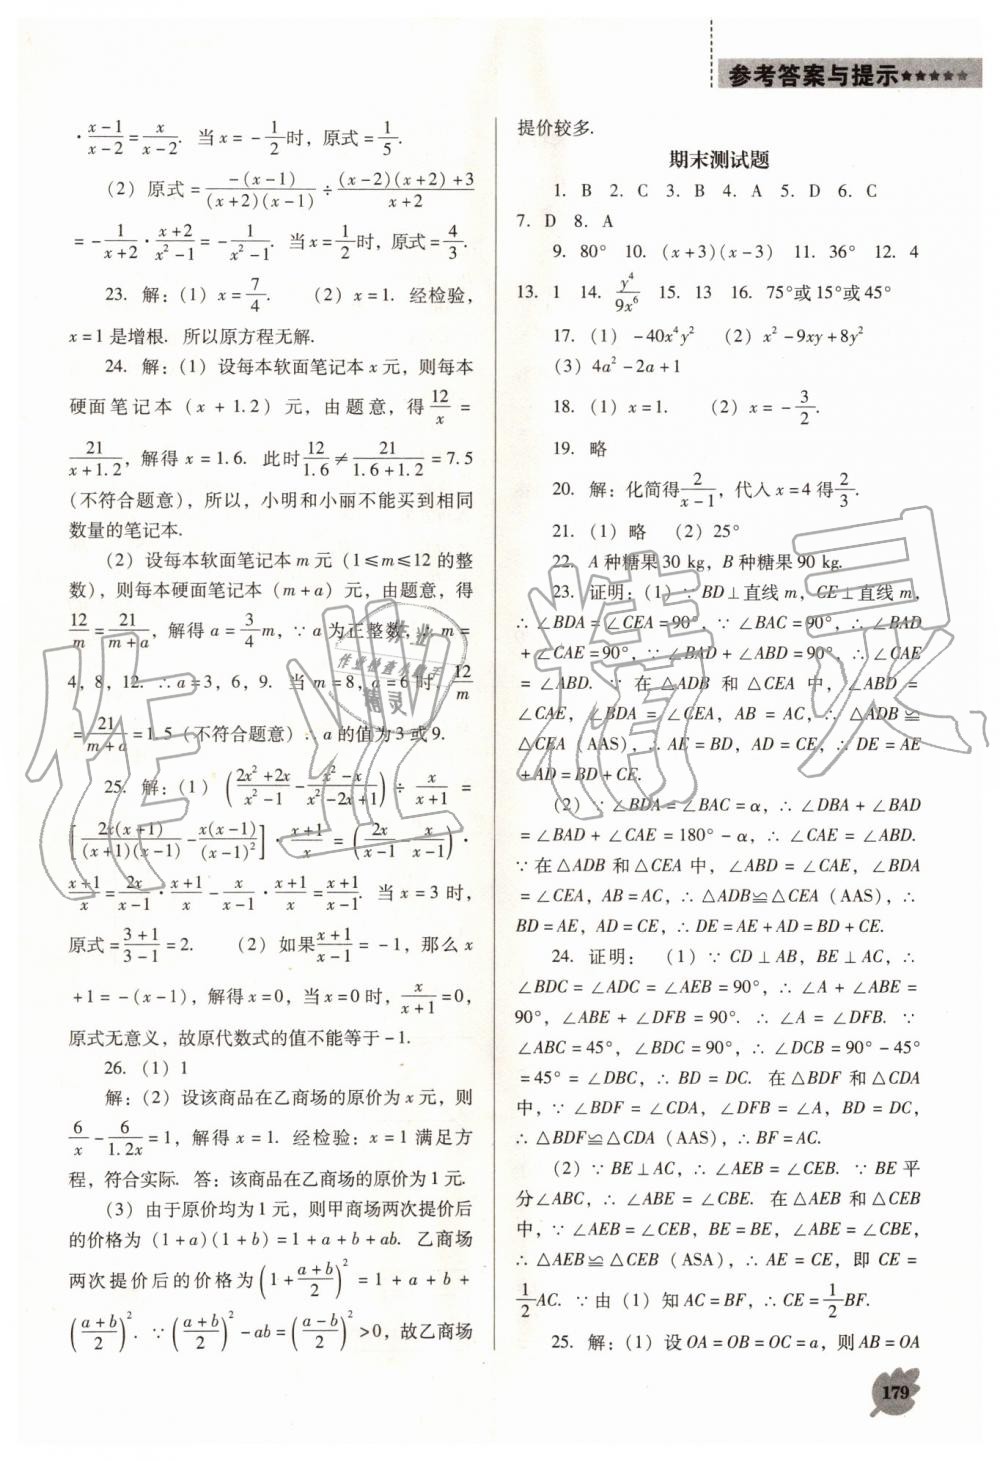 参考答案与提示★★★★★
·(x-1)/(x-2)=x/(x-2). 当x=-1/2时，原式=1/5.
(2) 原式=-(x-1)/((x+2)(x-1))÷((x-2)(x+2)+3)/(x+2)
=-1/(x+2)·(x+2)/(x²-1)=-1/(x²-1). 当x=1/2时，原式=4/3.
23. 解：(1) x=7/4. (2) x=1. 经检验，
x=1是增根. 所以原方程无解.
24. 解：(1) 设每本软面笔记本x元，则每本
硬面笔记本（x+1.2）元，由题意，得12/x=
21/(x+1.2)，解得x=1.6. 此时12/1.6≠21/(1.6+1.2)=7.5
(不符合题意)，所以，小明和小丽不能买到相同
数量的笔记本.
(2) 设每本软面笔记本m元（1≤m≤12的整
数），则每本硬面笔记本（m+a）元，由题意，得
12/m=21/(m+a)，解得a=3/4m，∵a为正整数，∴m=
4，8，12. ∴a=3，6，9. 当m=8，a=6时，12/m
=21/(m+a)=1.5（不符合题意）∴a的值为3或9.
25. 解：(1) ((2x²+2x)/(x²-1)-(x²-x)/(x²-2x+1))÷x/(x+1)=
[2x(x+1)/((x+1)(x-1))-x(x-1)/(x-1)²]·(x+1)/x=(2x/(x-1)-x/(x-1))·
(x+1)/x=2x/(x-1)·(x+1)/x-x/(x-1)·(x+1)/x=(x+1)/(x-1). 当x=3时，
原式=(3+1)/(3-1)=2. (2) 如果(x+1)/(x-1)=-1，那么x
+1=-(x-1)，解得x=0，当x=0时，x/(x+1)=0，
原式无意义，故原代数式的值不能等于-1.
26. (1) 1
解：(2) 设该商品在乙商场的原价为x元，则
6/x-6/1.2x=1，解得x=1. 经检验：x=1满足方
程，符合实际. 答：该商品在乙商场的原价为1元.
(3) 由于原价均为1元，则甲商场两次提价后
的价格为（1+a）（1+b）=1+a+b+ab. 乙商场
两次提价后的价格为(1+(a+b)/2)²=1+a+b+
((a+b)/2)². ∵((a+b)/2)²-ab=((a-b)/2)²>0，故乙商场
提价较多.
期末测试题
1. B 2. C 3. B 4. A 5. D 6. C
7. D 8. A
9. 80° 10. (x+3)(x-3) 11. 36° 12. 4
13. 1 14. y⁴/9x⁶ 15. 13 16. 75°或15°或45°
17. (1) -40x⁴y² (2) x²-9xy+8y²
(3) 4a²-2a+1
18. (1) x=1. (2) x=-3/2.
19. 略
20. 解：化简得2/(x-1)，代入x=4得2/3.
21. (1) 略 (2) 25°
22. A种糖果30 kg，B种糖果90 kg.
23. 证明：(1) ∵BD⊥直线m，CE⊥直线m，
∴∠BDA=∠CEA=90°，∵∠BAC=90°，∴∠BAD
+∠CAE=90°，∵∠BAD+∠ABD=90°，∴∠CAE
=∠ABD. ∵在△ADB和△CEA中，∠ABD=
∠CAE，∠BDA=∠CEA，AB=AC，∴△ADB≌
△CEA（AAS），∴AE=BD，AD=CE，∴DE=AE
+AD=BD+CE.
(2) ∵∠BDA=∠BAC=α，∴∠DBA+∠BAD
=∠BAD+∠CAE=180°-α，∴∠CAE=∠ABD.
∵在△ADB和△CEA中，∠ABD=∠CAE，∠BDA
=∠CEA，AB=AC，∴△ADB≌△CEA（AAS），∴
BD=AE，AD=CE，∴DE=AE+AD=BD+CE.
24. 证明：(1) ∵CD⊥AB，BE⊥AC，∴
∠BDC=∠ADC=∠AEB=90°，∴∠A+∠ABE=
90°，∠ABE+∠DFB=90°. ∴∠A=∠DFB. ∵
∠ABC=45°，∠BDC=90°，∴∠DCB=90°-45°
=45°=∠DBC，∴BD=DC. 在△BDF和△CDA
中，∵∠BDF=∠CDA，∠DFB=∠A，BD=DC，
∴△BDF≌△CDA（AAS），∴BF=AC.
(2) ∵BE⊥AC，∴∠AEB=∠CEB. ∵BE平
分∠ABC，∴∠ABE=∠CBE. 在△AEB和△CEB
中，∵∠AEB=∠CEB，BE=BE，∠ABE=∠CBE，
∴△AEB≌△CEB（ASA），∴AE=CE，即CE=
1/2AC. ∵由（1）知AC=BF，∴CE=1/2BF.
25. 解：(1) 设OA=OB=OC=a，则AB=OA
179
作业精灵
作业
作业检查小帮手
精灵